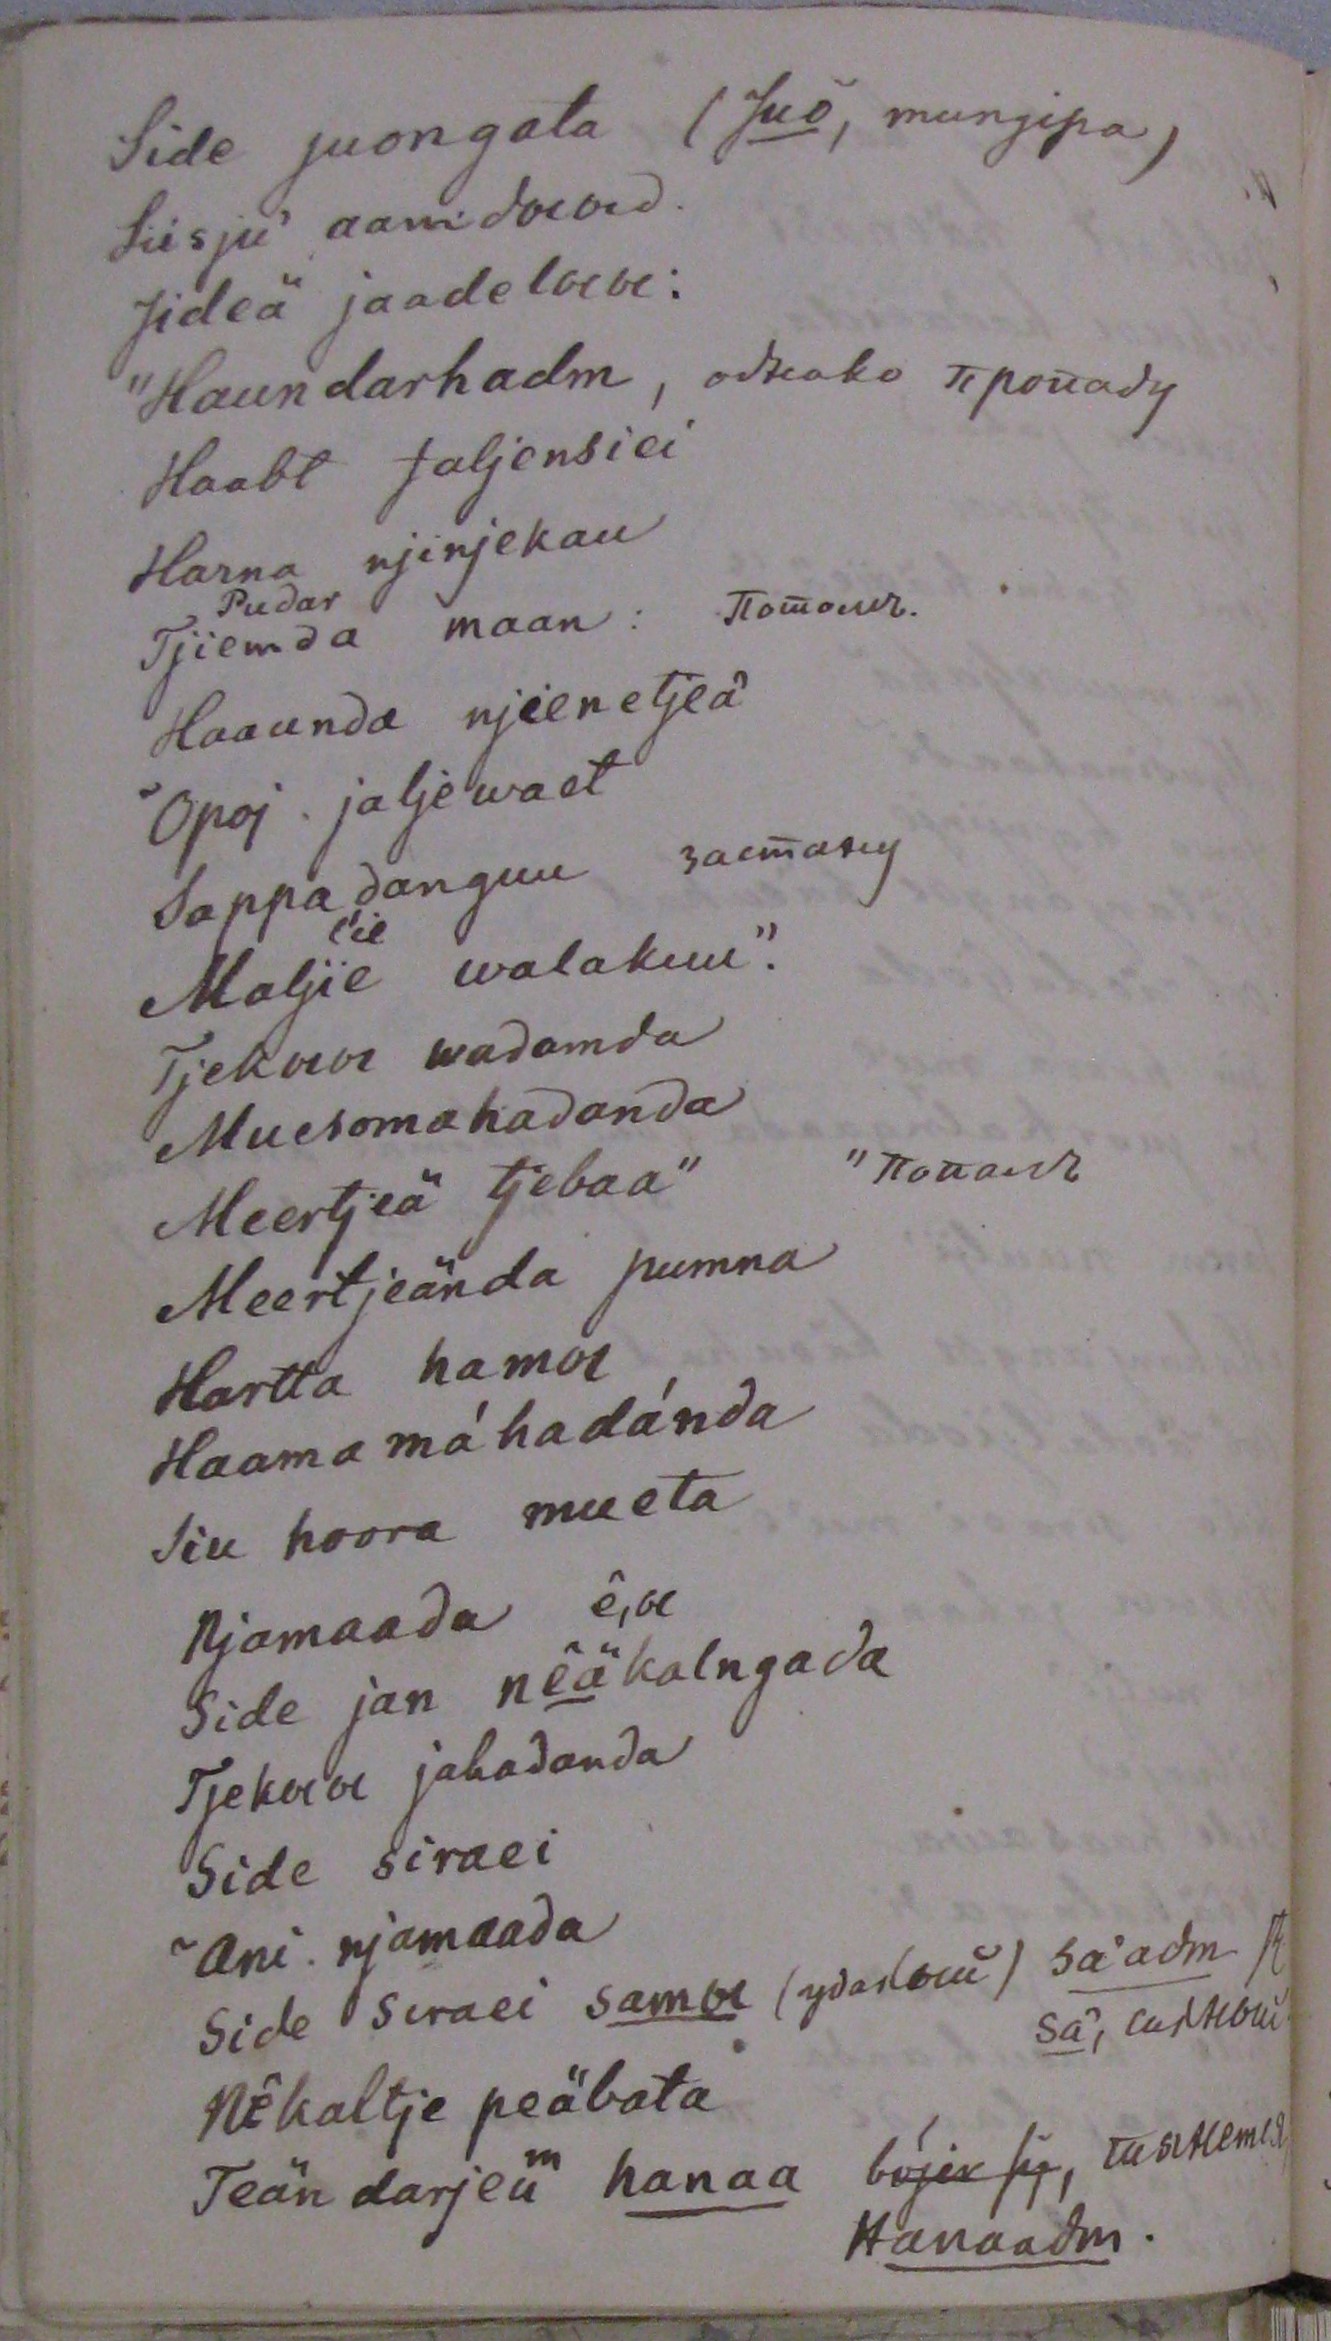 Side juongata (Juõ, mungipa)
Siisju' aamidoeoed.
Jideä jaadeloeoe:
"Haundarhadm, однако пропаду
Haabt jaljensiei
Harna njinjekau
Pudar
Tjiemda maan: Потомъ.
Haaunda njienetjeä
"Opoj. jaljewaet
Sappadanguu застану
l'ie
Maljie walakuu".
Tjekoeoe wadamda
Muesomahadanda
Meertjeä tjebaa" "Попалъ
Meertjeända pumna
Hartta hamoe
Haama máhadánda
Siu hoora mueta
Njamaada ê,oe
Side jan nêäkalngada
Tjekoeoe jahadanda
Side siraei
~Ani. njamaada
Side siraei samoe (удалой) sa'adm
Sa', сильной
Nêkaltje peäbata
Teän darjeü hanaa тянется
Hanaadm.